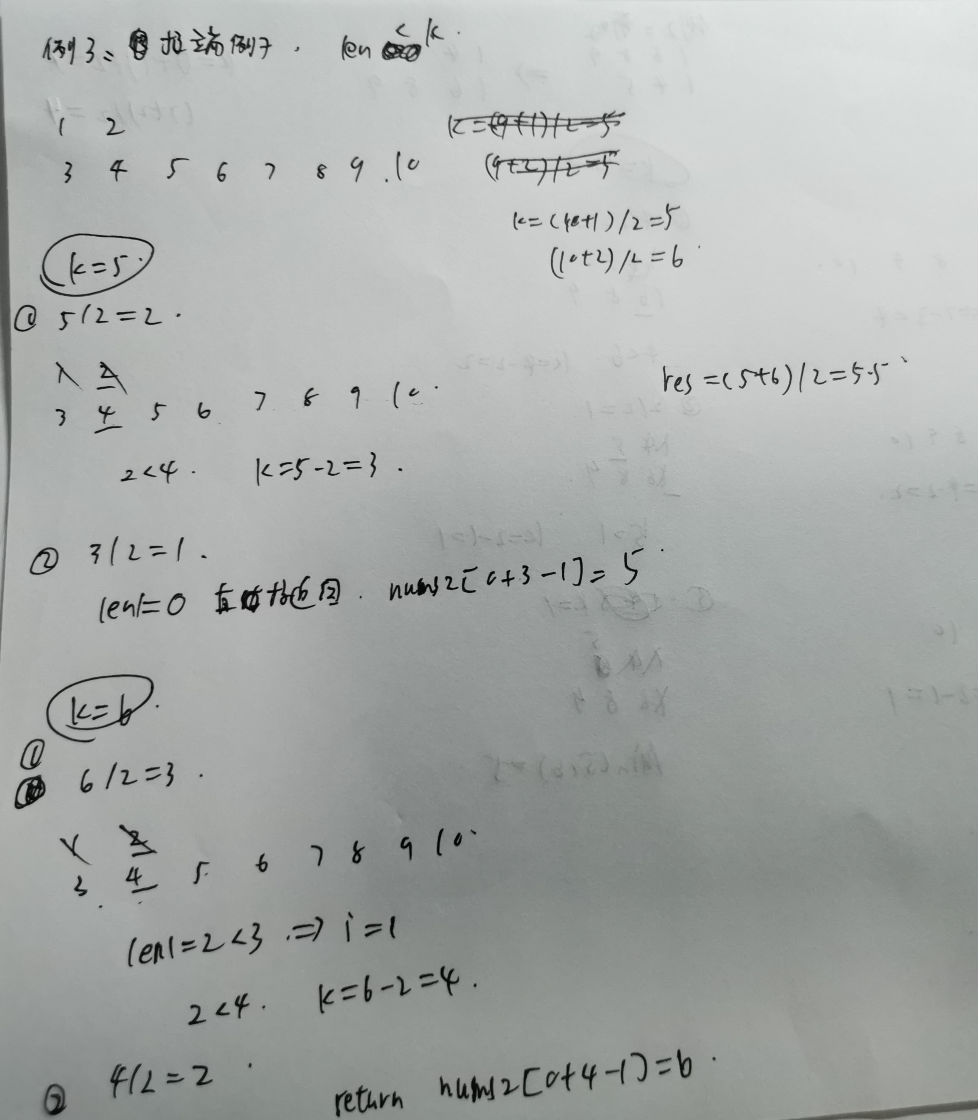 例3: 极端例子. len < k.
1 2
3 4 5 6 7 8 9 10
k=(9+1)/2=5
(9+2)/2=5
k=(10+1)/2=5
(10+2)/2=6
k=5
① 5/2=2.
1 2
3 4 5 6 7 8 9 10
res=(5+6)/2=5.5
2<4. k=5-2=3.
② 3/2=1.
len1=0 nums2[0+3-1]=5
k=6
① 6/2=3.
1 2
3 4 5 6 7 8 9 10
len1=2<3 => i=1
2<4. k=6-2=4.
② 4/2=2
return nums2[0+4-1]=6